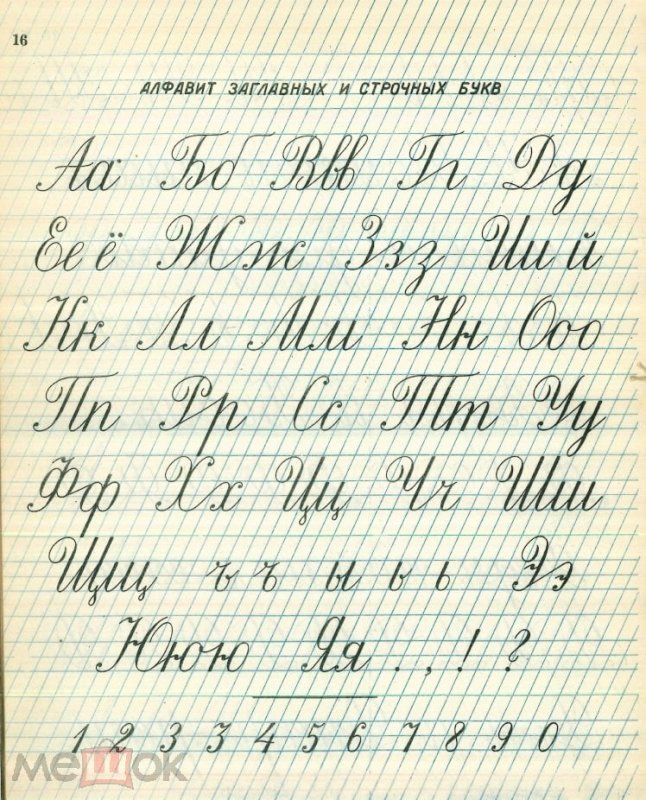 16
АЛФАВИТ ЗАГЛАВНЫХ И СТРОЧНЫХ БУКВ
Аа Бб Ввв Гг Дд
Ее ё Жж Ззз Ии й
Кк Лл Мм Нн Ооо
Пп Рр Сс Тт Уу
Фф Хх Цц Чч Шш
Щщ ъ ъ ы ь ь Ээ
Ююю Яя . , ! ?
1 2 3 3 4 5 6 7 8 9 0
мешок